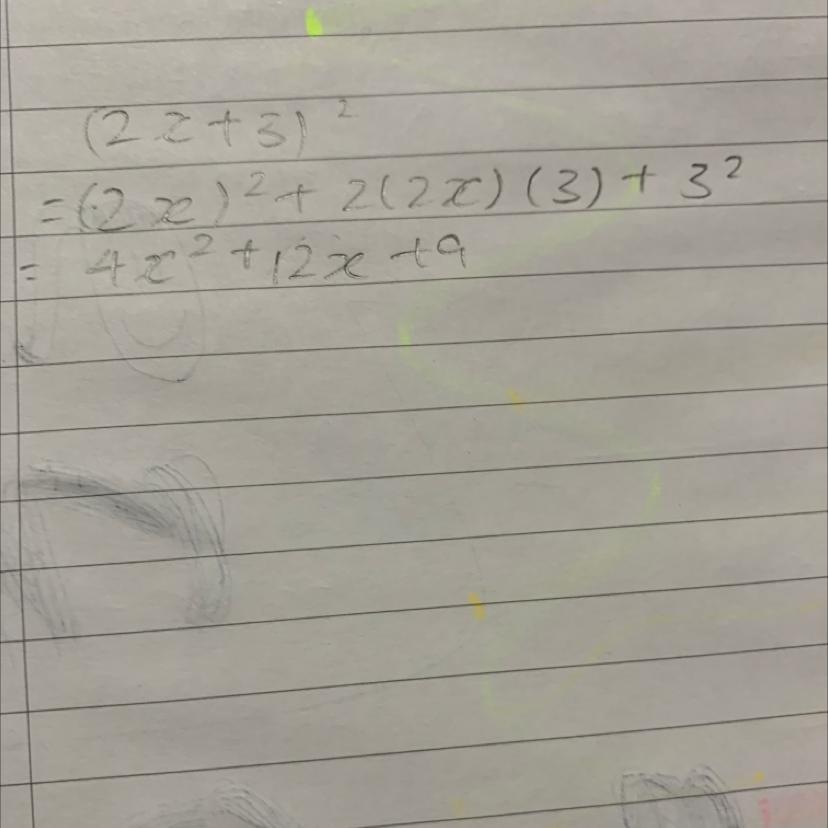 (2x+3)²
=(2x)²+ 2(2x)(3)+ 3²
= 4x²+12x+9